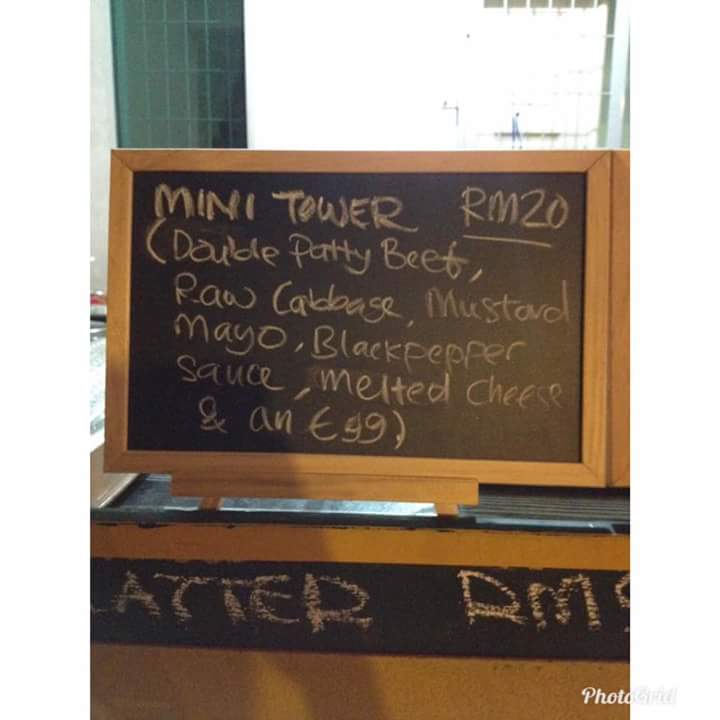 MINI TOWER RM20
(Double Patty Beef,
Raw Cabbage, Mustard
Mayo, Blackpepper
Sauce, Melted Cheese
& an Egg)
LATTER RM
PhotoGrid